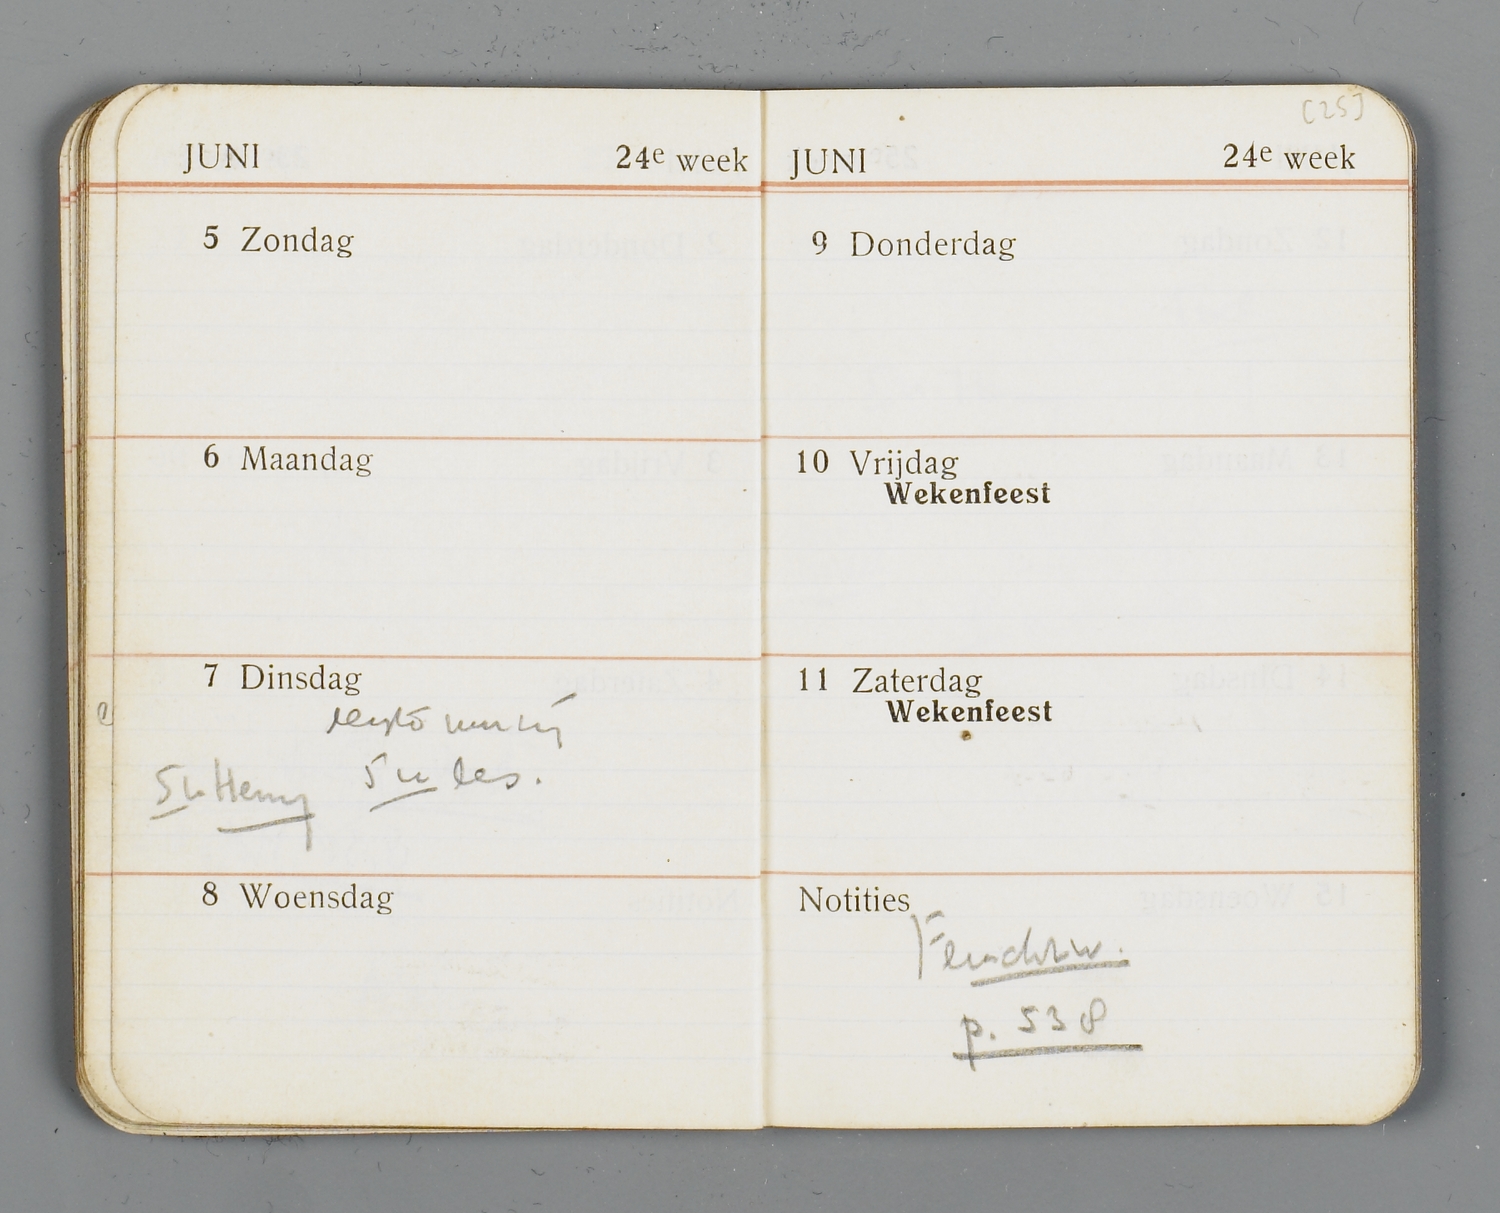 JUNI 24e week
5 Zondag
6 Maandag
7 Dinsdag
5 u Henny 5 u les.
8 Woensdag
[25]
JUNI 24e week
9 Donderdag
10 Vrijdag
Wekenfeest
11 Zaterdag
Wekenfeest
Notities
p. 538